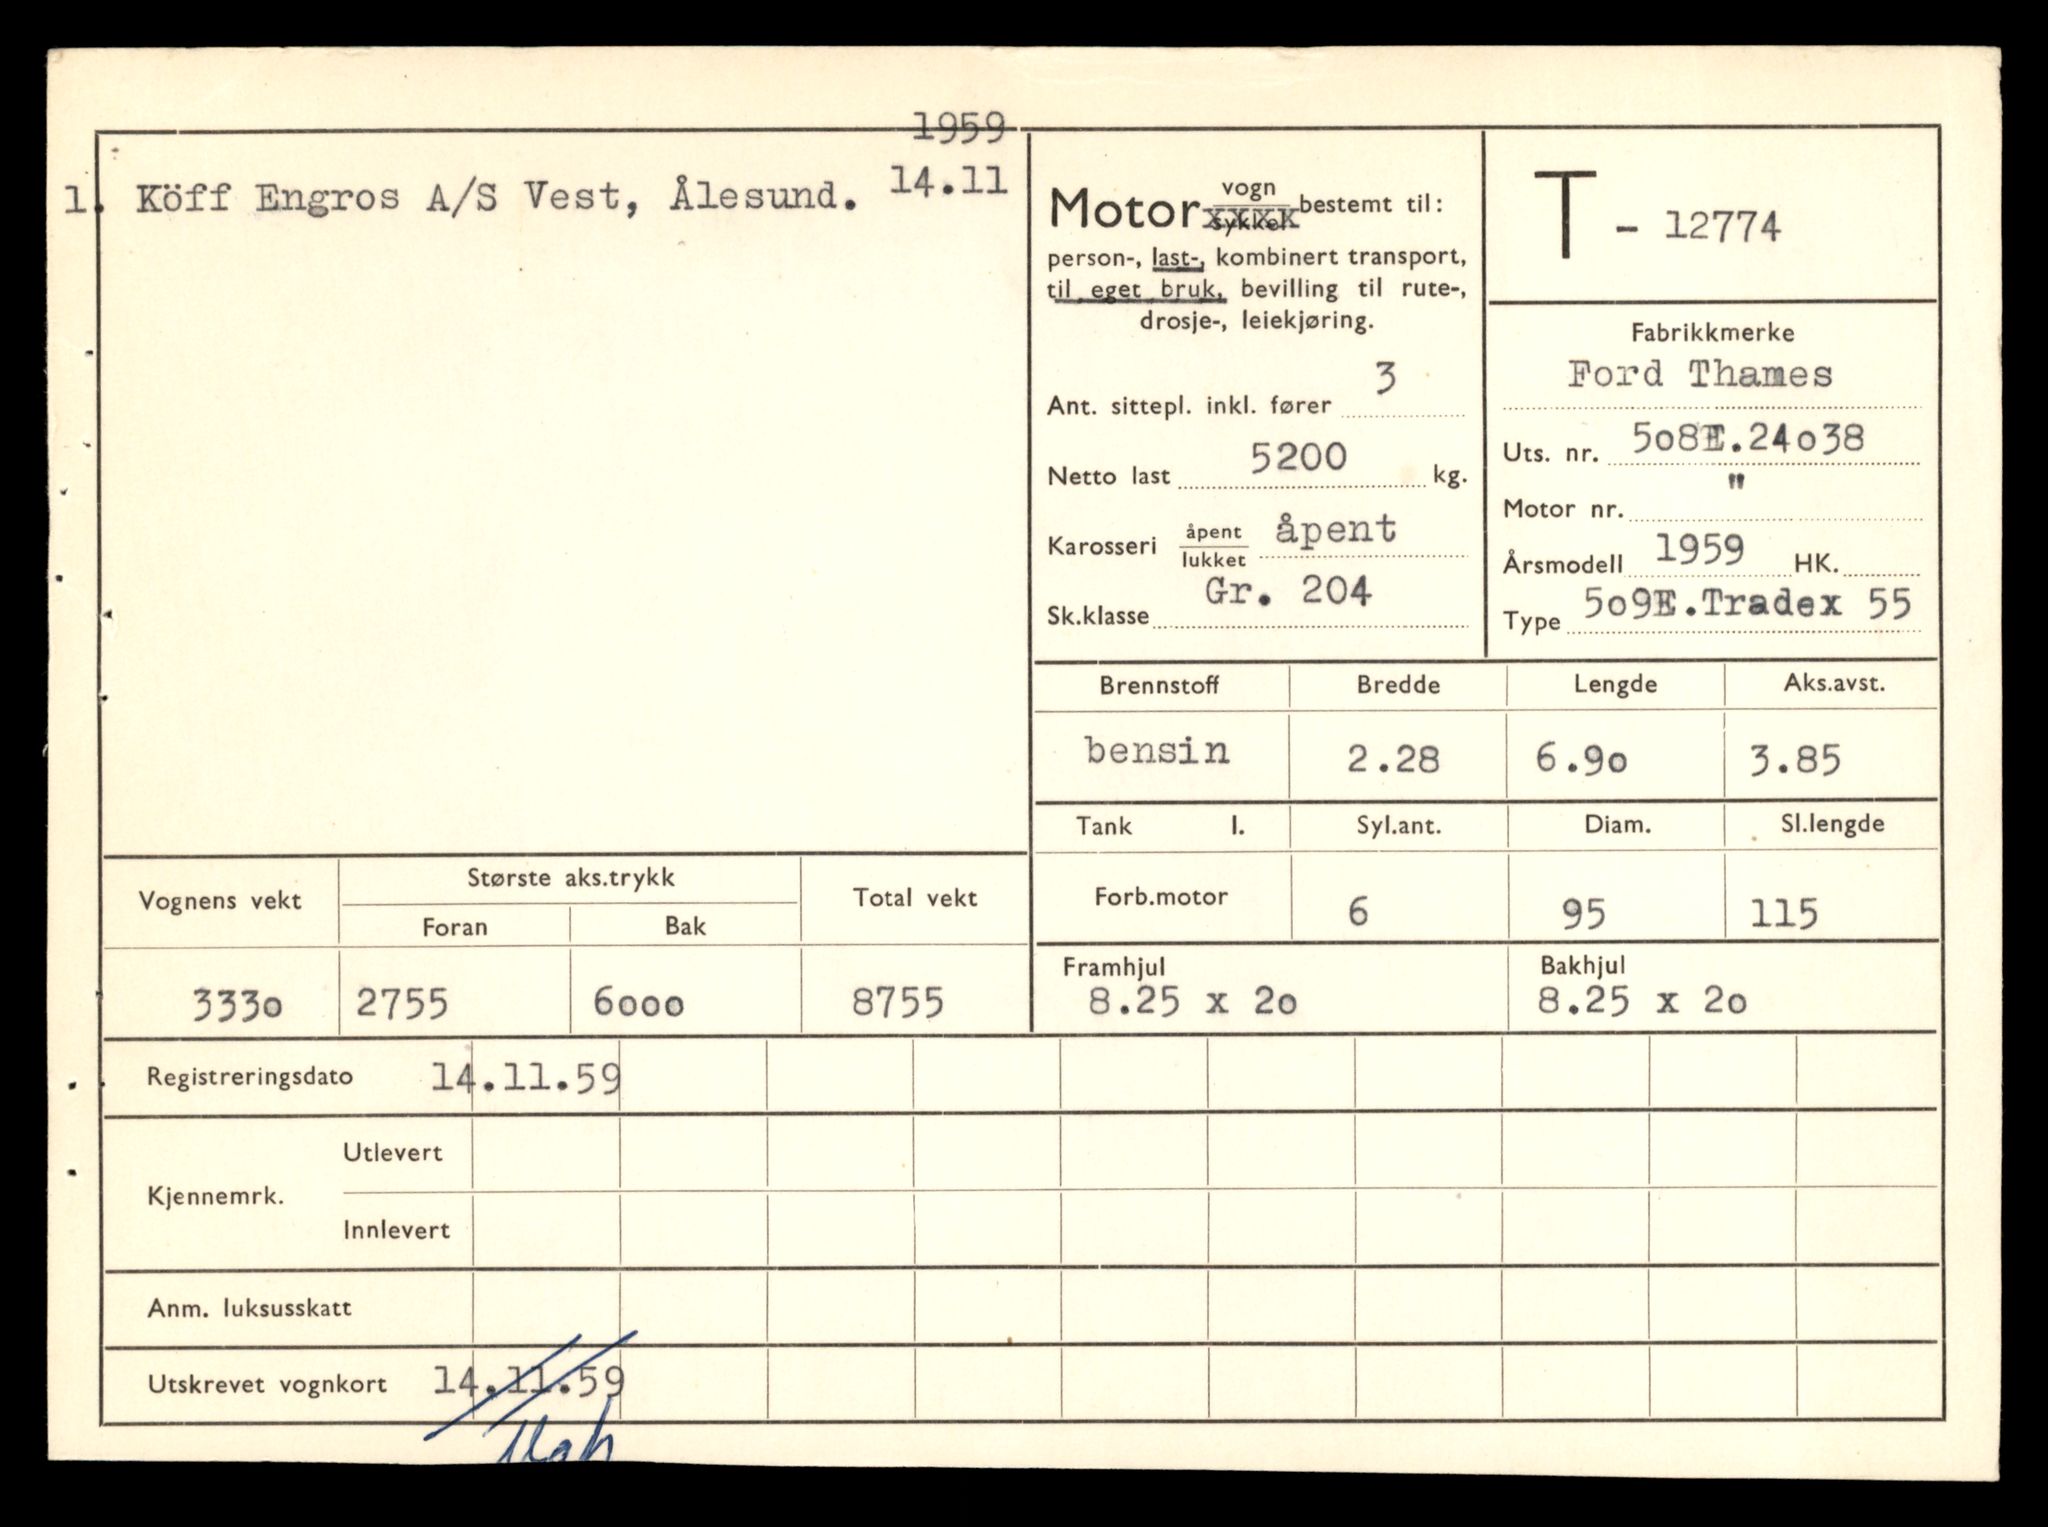 1959
1. Köff Engros A/S Vest, Ålesund. 14.11
Motor vogn sykkel bestemt til:
person-, last-, kombinert transport,
til eget bruk, bevilling til rute-,
drosje-, leiekjøring.
Ant. sittepl. inkl. fører 3
Netto last 5200 kg.
Karosseri åpent lukket åpent
Sk.klasse Gr. 204
T - 12774
Fabrikkmerke
Ford Thames
Uts. nr. 5o8E.24o38
Motor nr. "
Årsmodell 1959 HK.
Type 5o9E.Tradex 55
Brennstoff Bredde Lengde Aks.avst.
bensin 2.28 6.9o 3.85
Tank l. Syl.ant. Diam. Sl.lengde
Forb.motor 6 95 115
Framhjul Bakhjul
8.25 x 2o 8.25 x 2o
Vognens vekt Største aks.trykk Total vekt
Foran Bak
333o 2755 6ooo 8755
Registreringsdato 14.11.59
Kjennemrk. Utlevert
Innlevert
Anm. luksusskatt
Utskrevet vognkort 14.11.59